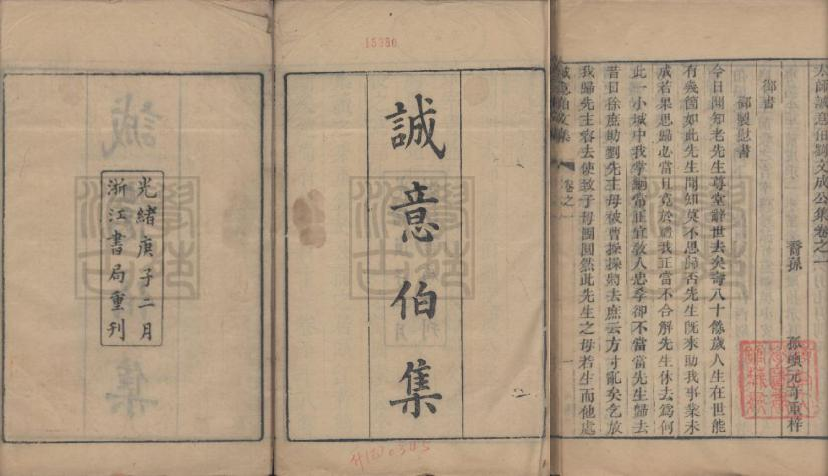 誠意伯集
光緒庚子二月
浙江書局重刊
太師誠意伯劉文成公集卷之一
裔孫 孤嶼元奇重梓
御書
御製慰書
今日聞知老先生尊堂辭世去矣壽八十餘歲人生在世能
有幾箇如此先生聞知莫不思歸否先生旣來助我事業未
成若果思歸必當且寬於禮我正當不合解先生休去為何
此一小城中我掌綱常正宜教人忠孝卻不當當先生歸去
昔日徐庶助劉先主母被曹操操將去庶云方寸亂矣乞放
我歸先主容去使致子母團圓然此先生之母若生而他處
誠意伯文集 卷之一 一